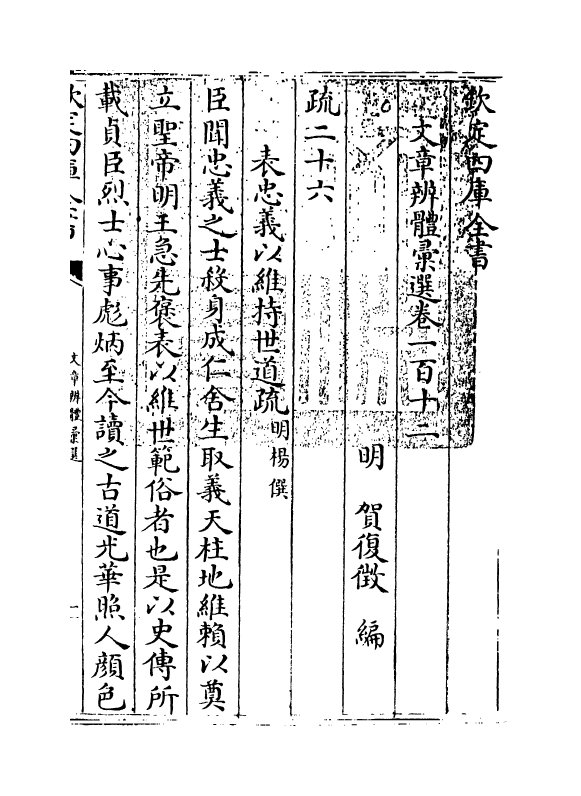 欽定四庫全書
文章辨體彚選卷一百十二
明 賀復徵 編
疏二十六
表忠義以維持世道疏明楊僎
臣聞忠義之士殺身成仁舍生取義天柱地維賴以奠
立聖帝明王急先褒表以維世範俗者也是以史傳所
載貞臣烈士心事彪炳至今讀之古道光華照人顔色
欽定四庫全書
文章辨體彚選
一